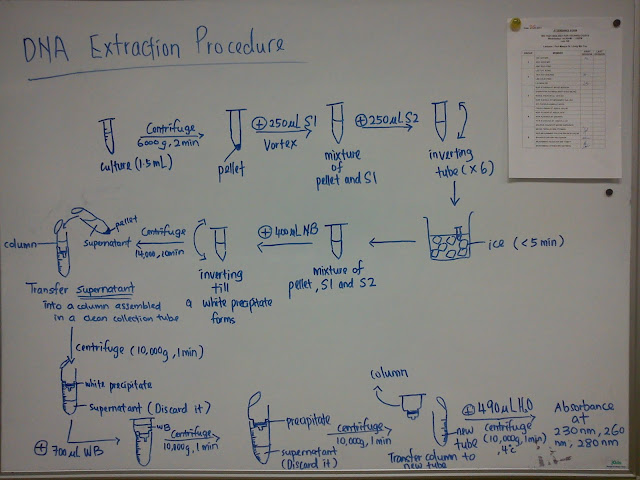 DNA Extraction Procedure
culture (1.5mL)
Centrifuge
6000g, 2min
pellet
+ 250µL S1
Vortex
mixture
of
pellet and S1
+ 250µL S2
inverting
tube (×6)
ice (<5 min)
mixture of
pellet, S1 and S2
+ 400µL NB
inverting
till
a white precpitate
forms
Centrifuge
14,000, 10min
pellet
supernatant
column
Transfer supernatant
into a column assembled
in a clean collection tube
centrifuge (10,000g, 1min)
white precipitate
supernatant (Discard it)
+ 700µL WB
WB
Centrifuge
10,000g, 1min
precipitate
supernatant
(Discard it)
centrifuge
10,000g, 1min
column
new
tube
Transfer column to
new tube
+ 490µL H2O
centrifuge
(10,000g, 1min)
, 4°C
Absorbance
at
230nm, 260
nm, 280nm